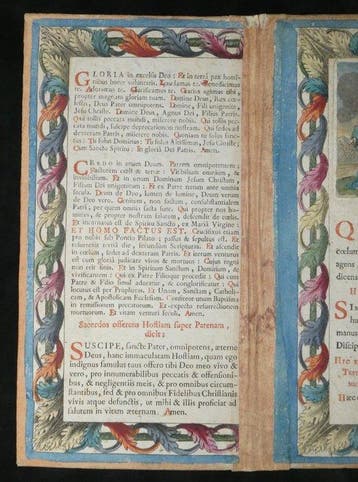 GLORIA in excelsis Deo: Et in terra pax homi-
nibus bonæ voluntatis. Laudamus te. Benedicimus
te. Adoramus te. Glorificamus te. Gratias agimus tibi
propter magnam gloriam tuam. Domine Deus, Rex cœ-
lestis, Deus Pater omnipotens. Domine, Fili unigenite,
Jesu Christe. Domine Deus, Agnus Dei, Filius Patris.
Qui tollis peccata mundi, miserere nobis. Qui tollis pec-
cata mundi, suscipe deprecationem nostram. Qui sedes ad
dexteram Patris, miserere nobis. Quoniam tu solus San-
ctus: Tu solus Dominus: Tu solus Altissimus, Jesu Christe:
Cum Sancto Spiritu: In gloria Dei Patris. Amen.
CREDO in unum Deum. Patrem omnipotentem;
Factorem cœli & terræ: Visibilium omnium, &
invisibilium. Et in unum Dominum Jesum Christum,
Filium Dei unigenitum: Et ex Patre natum ante omnia
sæcula. Deum de Deo, lumen de lumine, Deum verum
de Deo vero. Genitum, non factum, consubstantialem
Patri, per quem omnia facta sunt. Qui propter nos ho-
mines, & propter nostram salutem, descendit de cœlis.
Et incarnatus est de Spiritu Sancto, ex Maria Virgine:
ET HOMO FACTUS EST. Crucifixus etiam
pro nobis sub Pontio Pilato: passus & sepultus est. Et
resurrexit tertia die, secundum Scripturas. Et ascendit
in cœlum, sedet ad dexteram Patris. Et iterum venturus
est cum gloria judicare vivos & mortuos: Cujus regni
non erit finis. Et in Spiritum Sanctum, Dominum, &
vivificantem: Qui ex Patre Filioque procedit: Qui cum
Patre & Filio simul adoratur, & conglorificatur: Qui
locutus est per Prophetas. Et Unam, Sanctam, Catholi-
cam, & Apostolicam Ecclesiam. Confiteor unum Baptisma
in remissionem peccatorum. Et expecto resurrectionem
mortuorum. Et vitam venturi sæculi. Amen.
Sacerdos offerens Hostiam super Patenam,
dicit:
SUSCIPE, sancte Pater, omnipotens, æterne
Deus, hanc immaculatam Hostiam, quam ego
indignus famulus tuus offero tibi Deo meo vivo &
vero, pro innumerabilibus peccatis & offensioni-
bus, & negligentiis meis, & pro omnibus circum-
stantibus, sed & pro omnibus Fidelibus Christianis
vivis atque defunctis, ut mihi & illis proficiat ad
salutem in vitam æternam. Amen.